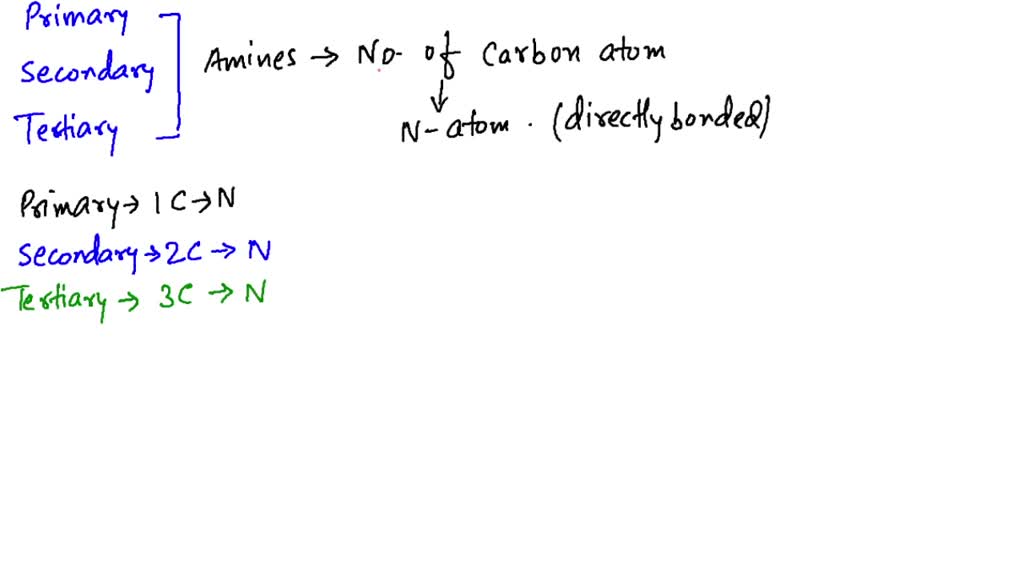 Primary
Secondary
Tertiary
Amines → No. of Carbon atom
↓
N-atom. (directly bonded)
Primary → 1C → N
Secondary → 2C → N
Tertiary → 3C → N